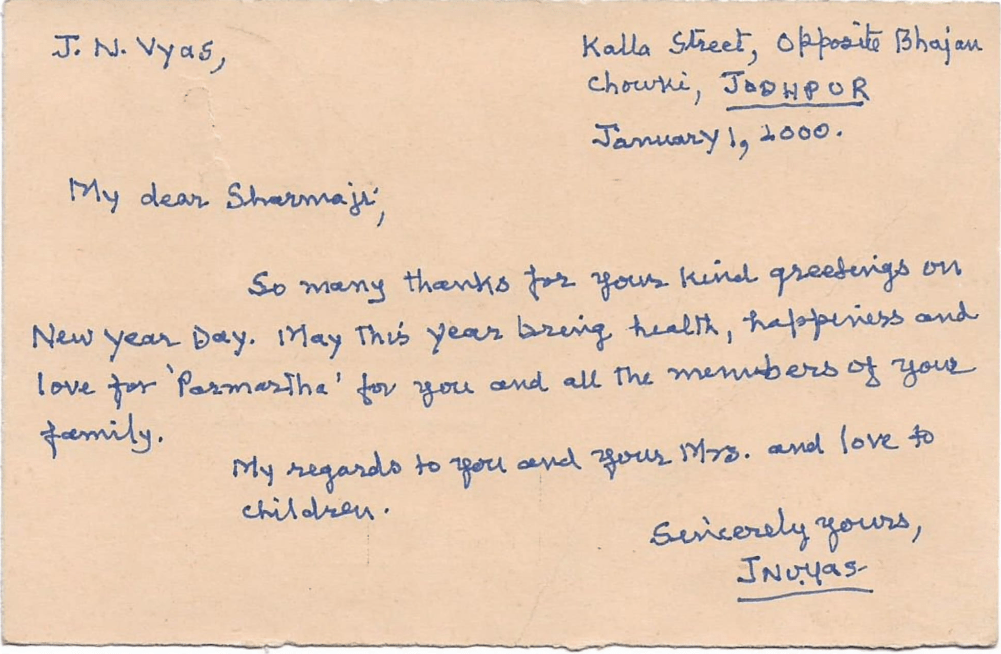 J. N. Vyas,
Kalla Street, Opposite Bhajan
Chowki, JODHPUR
January 1, 2000.
My dear Sharmaji,
So many thanks for your kind greetings on
New year Day. May this year bring health, happiness and
love for 'Parmartha' for you and all the members of your
family.
My regards to you and your Mrs. and love to
children.
Sincerely yours,
JNVyas